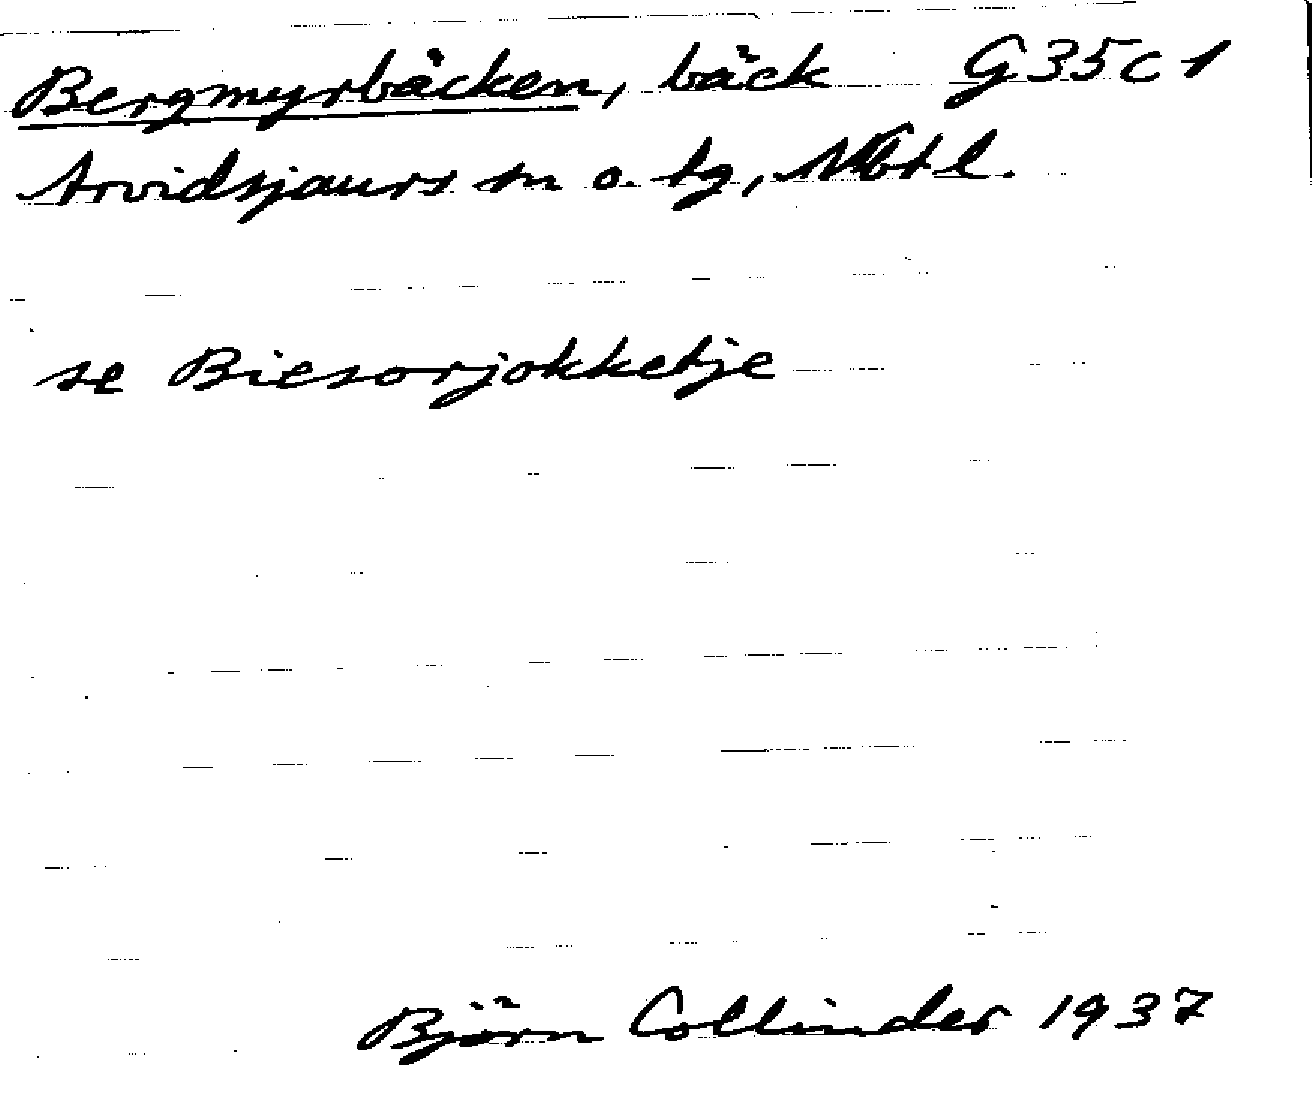 Bergmyrbäcken, bäck G35c1
Arvidsjaurs sn o. tg, Nbtl.
se Biesorjokketje
Björn Collinder 1937